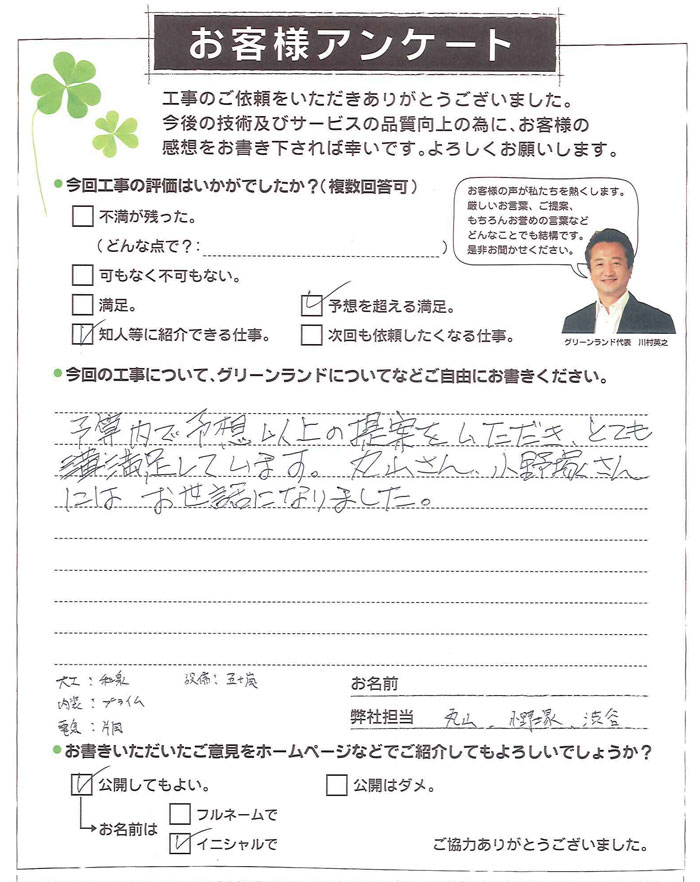 お客様アンケート
工事のご依頼をいただきありがとうございました。
今後の技術及びサービスの品質向上の為に、お客様の
感想をお書き下されば幸いです。よろしくお願いします。
●今回工事の評価はいかがでしたか?(複数回答可)
お客様の声が私たちを熱くします。
厳しいお言葉、ご提案、
もちろんお誉めの言葉など
どんなことでも結構です。
是非お聞かせください。
不満が残った。
(どんな点で?: )
可もなく不可もない。
満足。 予想を超える満足。
知人等に紹介できる仕事。 次回も依頼したくなる仕事。
グリーンランド代表 川村英之
●今回の工事について、グリーンランドについてなどご自由にお書きください。
予算内で予想以上の提案をいただき、とても
満足しています。丸山さん、小野塚さん
には お世話になりました。
大工:和泉 設備:五十嵐
内装:プライム
電気:片岡
お名前
弊社担当 丸山、小野塚、渋谷
●お書きいただいたご意見をホームページなどでご紹介してもよろしいでしょうか?
公開してもよい。 公開はダメ。
お名前は フルネームで
イニシャルで
ご協力ありがとうございました。